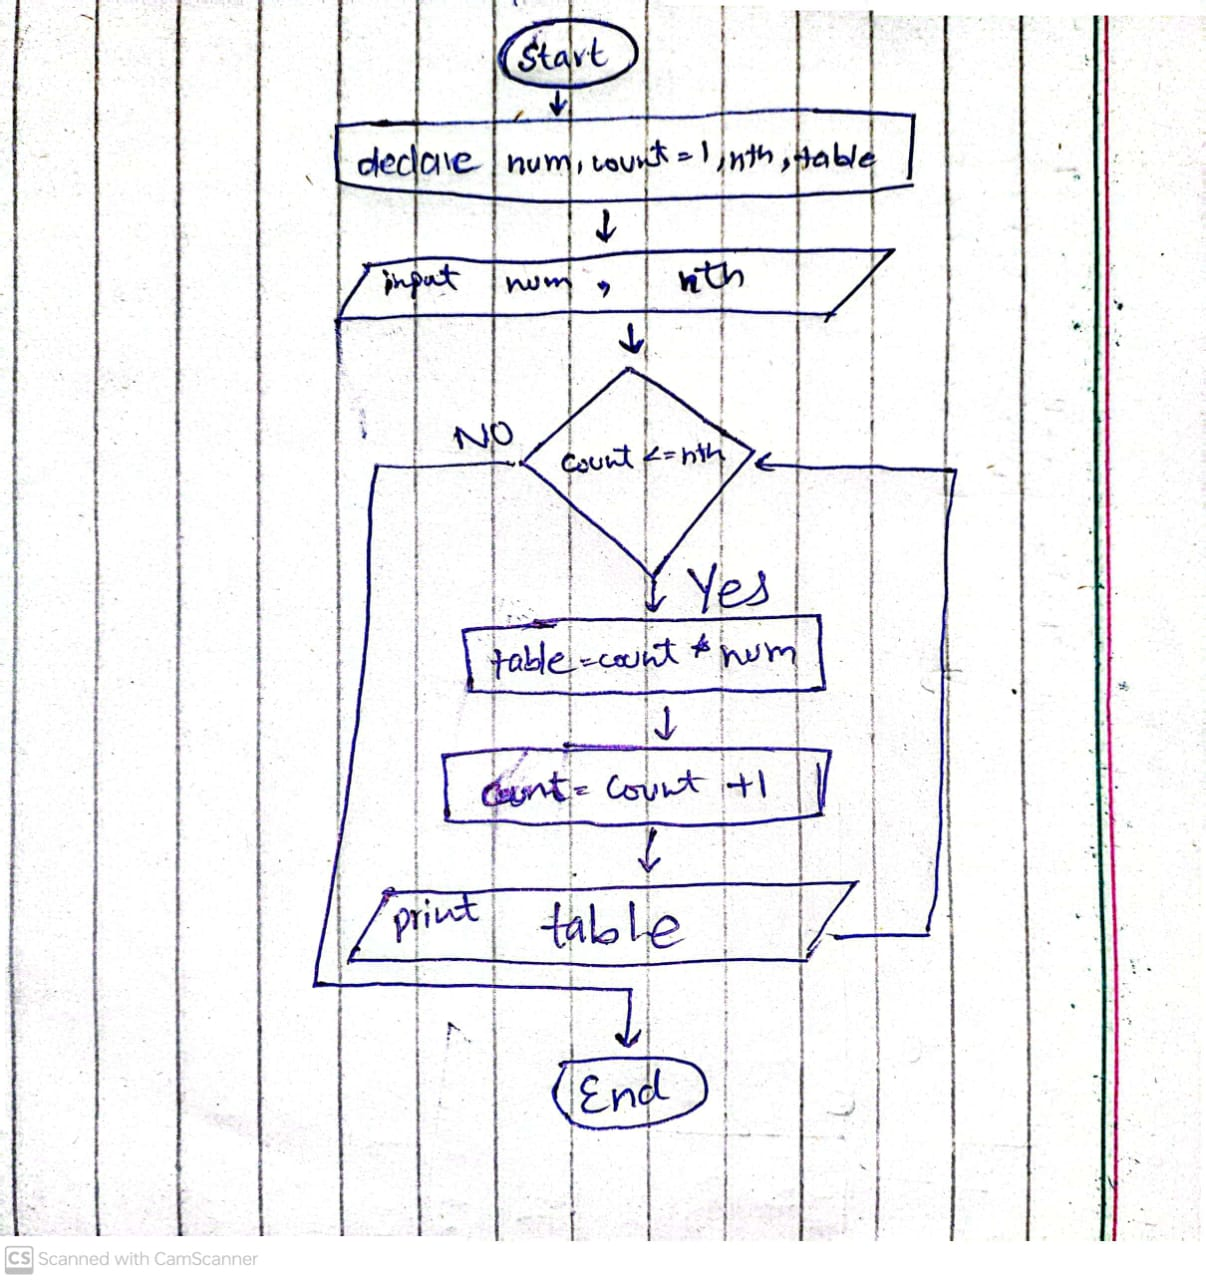 Start
declare num, count = 1, nth, table
input num, nth
NO
count <= nth
Yes
table = count * num
count = count + 1
print table
End
CS Scanned with CamScanner